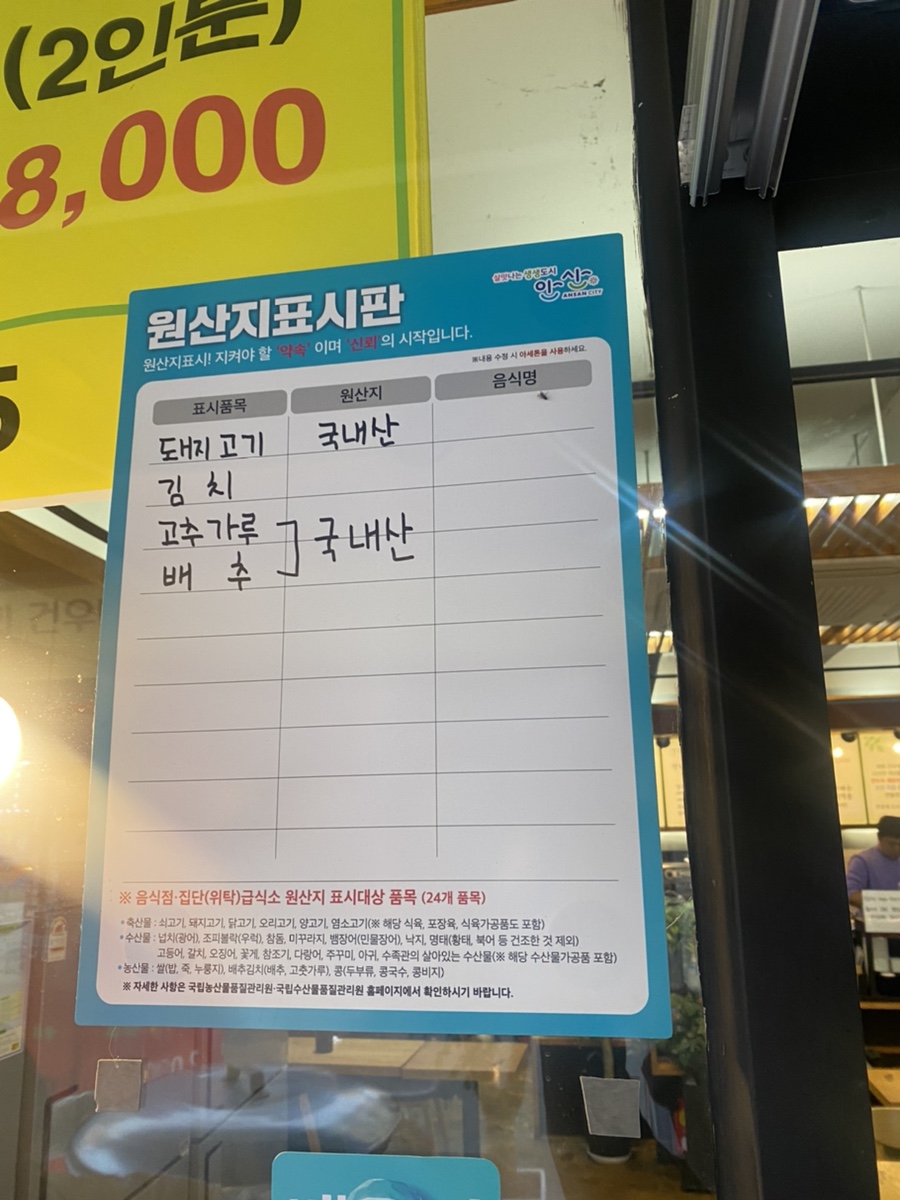 (2인분)
8,000
5
원산지표시판
살맛나는 생생도시
안산시
ANSAN CITY
원산지표시! 지켜야 할 '약속' 이며 '신뢰'의 시작입니다.
※내용 수정 시 아세톤을 사용하세요.
표시품목 원산지 음식명
돼지고기 국내산
김 치
고추가루
배 추 ] 국내산
※ 음식점·집단(위탁)급식소 원산지 표시대상 품목 (24개 품목)
• 축산물 : 쇠고기, 돼지고기, 닭고기, 오리고기, 양고기, 염소고기(※ 해당 식육, 포장육, 식육가공품도 포함)
• 수산물 : 넙치(광어), 조피볼락(우럭), 참돔, 미꾸라지, 뱀장어(민물장어), 낙지, 명태(황태, 북어 등 건조한 것 제외)
고등어, 갈치, 오징어, 꽃게, 참조기, 다랑어, 주꾸미, 아귀, 수족관의 살아있는 수산물(※ 해당 수산물가공품 포함)
• 농산물 : 쌀(밥, 죽, 누룽지), 배추김치(배추, 고춧가루), 콩(두부류, 콩국수, 콩비지)
※ 자세한 사항은 국립농산물품질관리원·국립수산물품질관리원 홈페이지에서 확인하시기 바랍니다.